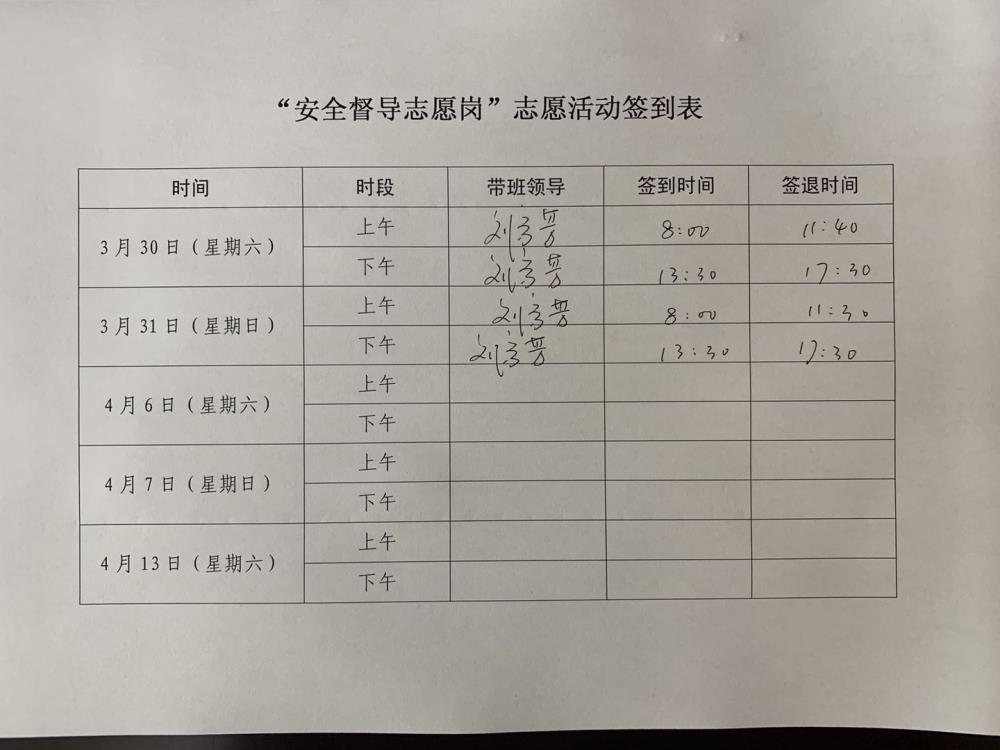 “安全督导志愿岗”志愿活动签到表
时间 时段 带班领导 签到时间 签退时间
3月30日（星期六） 上午 8:00 11:40
下午 13:30 17:30
3月31日（星期日） 上午 8:00 11:30
下午 13:30 17:30
4月6日（星期六） 上午
下午
4月7日（星期日） 上午
下午
4月13日（星期六） 上午
下午